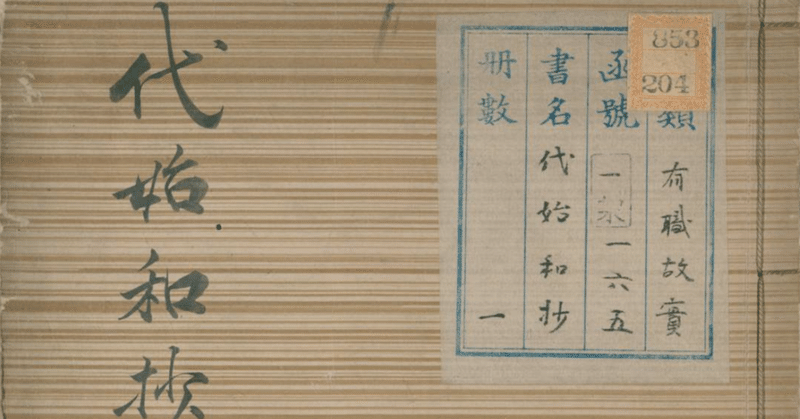 853
204
類 有職故實
函號 一 一六五
書名 代始和抄
册數 一
代始和抄